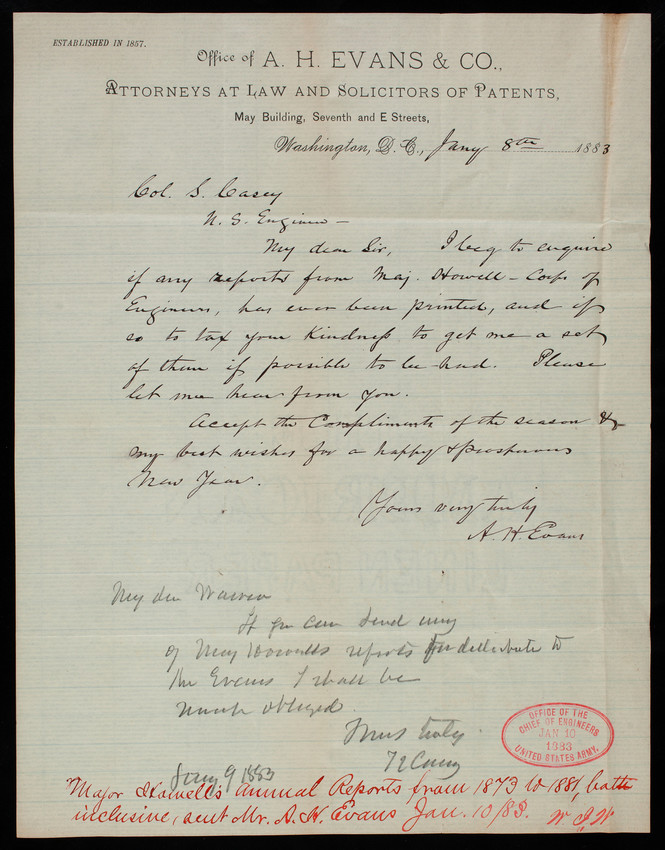 ESTABLISHED IN 1857.
Office of A. H. EVANS & CO.,
ATTORNEYS AT LAW AND SOLICITORS OF PATENTS,
May Building, Seventh and E Streets,
Washington, D. C., Jany 8th 1883
Col. S. Casey
U. S. Engineer —
My dear Sir, I beg to enquire
if any reports from Maj. Howell – Corps of
Engineers, has ever been printed, and if
so to tax your kindness to get me a set
of them if possible to be had. Please
let me hear from you.
Accept the Compliments of the season &
my best wishes for a happy & prosperous
New Year.
Yours very truly
A. H. Evans
My dear Warren
If you can send any
of Maj Howells reports for distribute to
Mr Evans I shall be
much obliged.
Yours truly
T L Casey
Jany 9 1883
OFFICE OF THE
CHIEF OF ENGINEERS
JAN 10
1883
UNITED STATES ARMY.
Major Howell's Annual Reports from 1873 to 1881, both
inclusive, sent Mr. A. H. Evans Jan. 10/83.